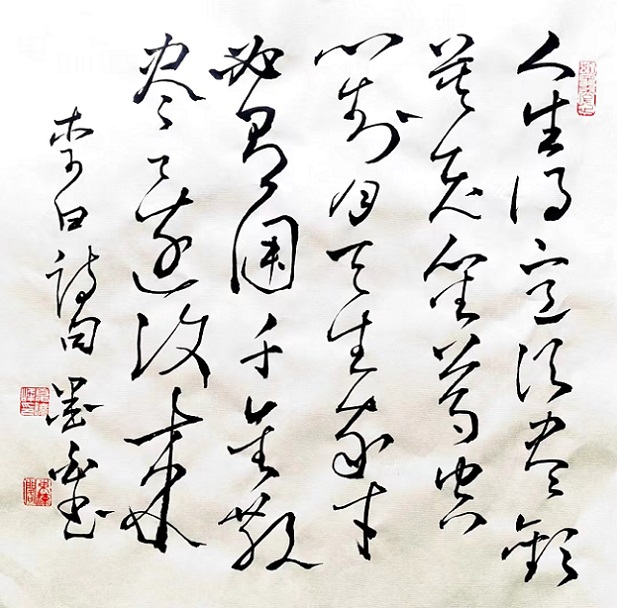 人生得意须尽欢
莫使金樽空
对月天生我才
必有用千金散
尽还复来
李白诗句